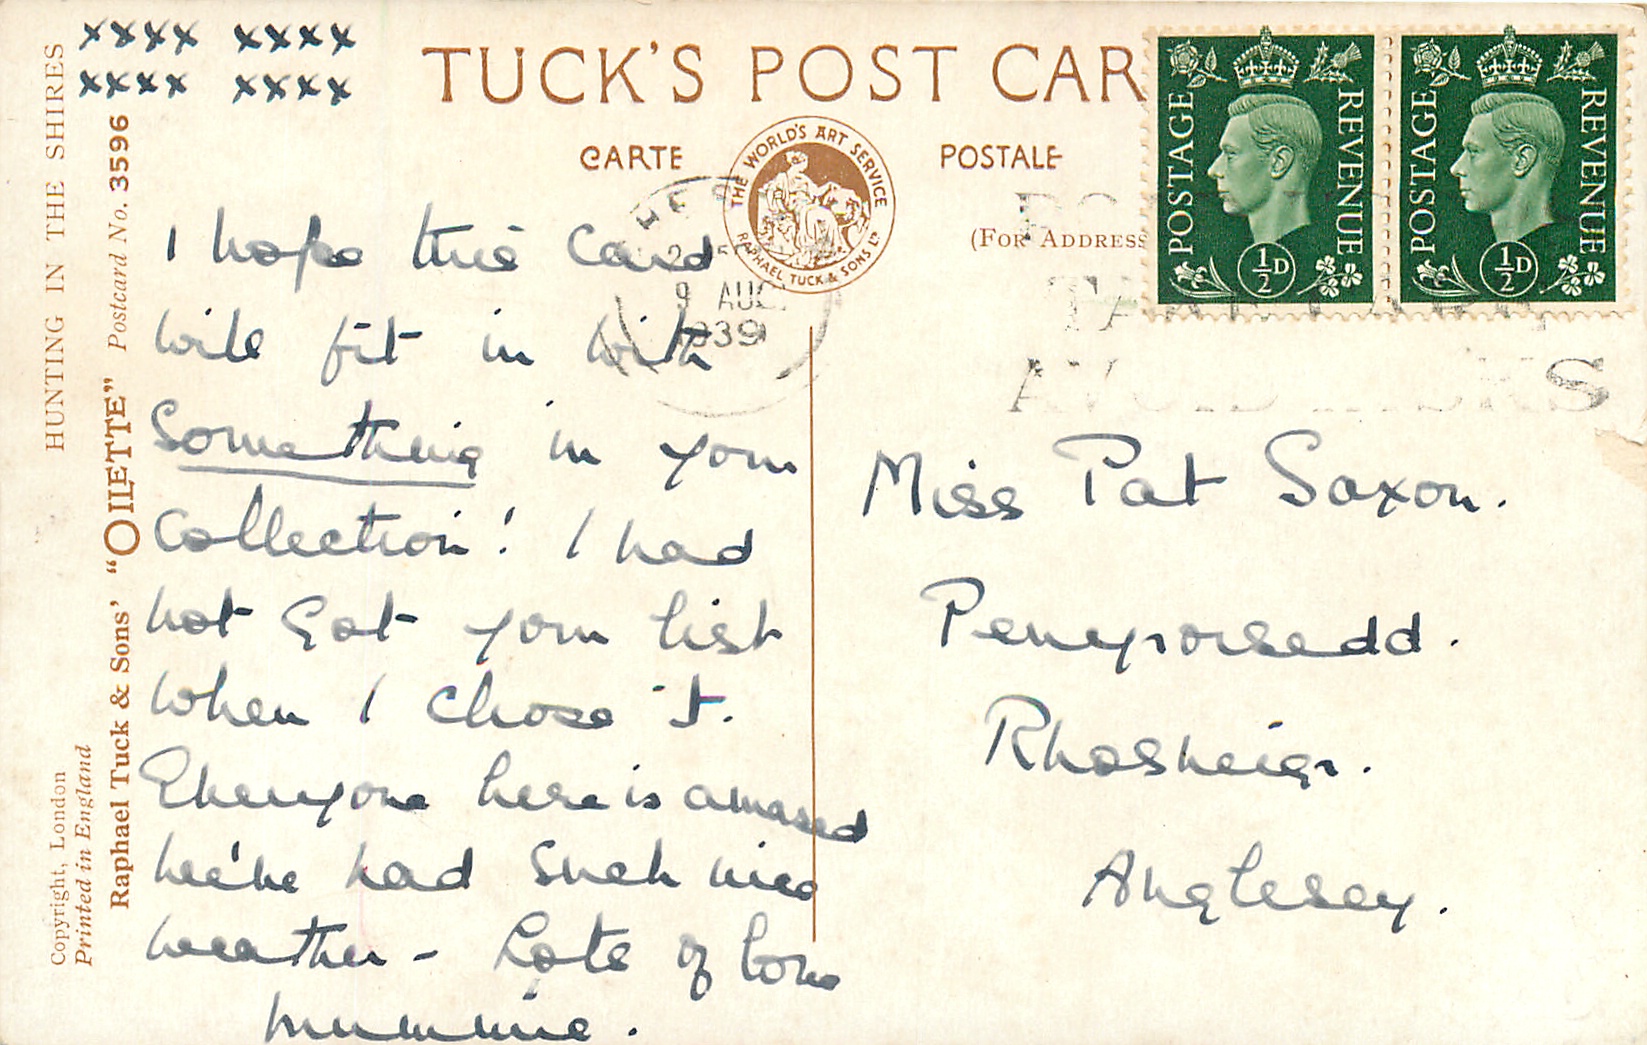 xxxx xxxx
xxxx xxxx
HUNTING IN THE SHIRES
Copyright, London
Printed in England
Raphael Tuck & Sons' "OILETTE" Postcard No. 3596
TUCK'S POST CAR
CARTE POSTALE
THE WORLD'S ART SERVICE
RAPHAEL TUCK & SONS LTD
(FOR ADDRESS
POSTAGE REVENUE
½D
POSTAGE REVENUE
½D
9 AUG
1939
AVOID
I hope this Card
will fit in with
Something in your
Collection! I had
not got your list
when I chose it.
Everyone here is amazed
we've had such nice
weather - Lots of love
Mummie.
Miss Pat Saxon.
Penyrorsedd.
Rhosneigr.
Anglesey.